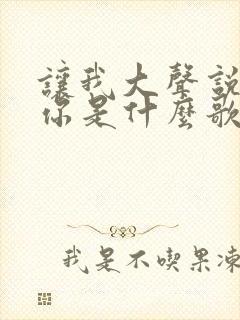 讓我大聲說
你是什麼歌
我是不喫果凍